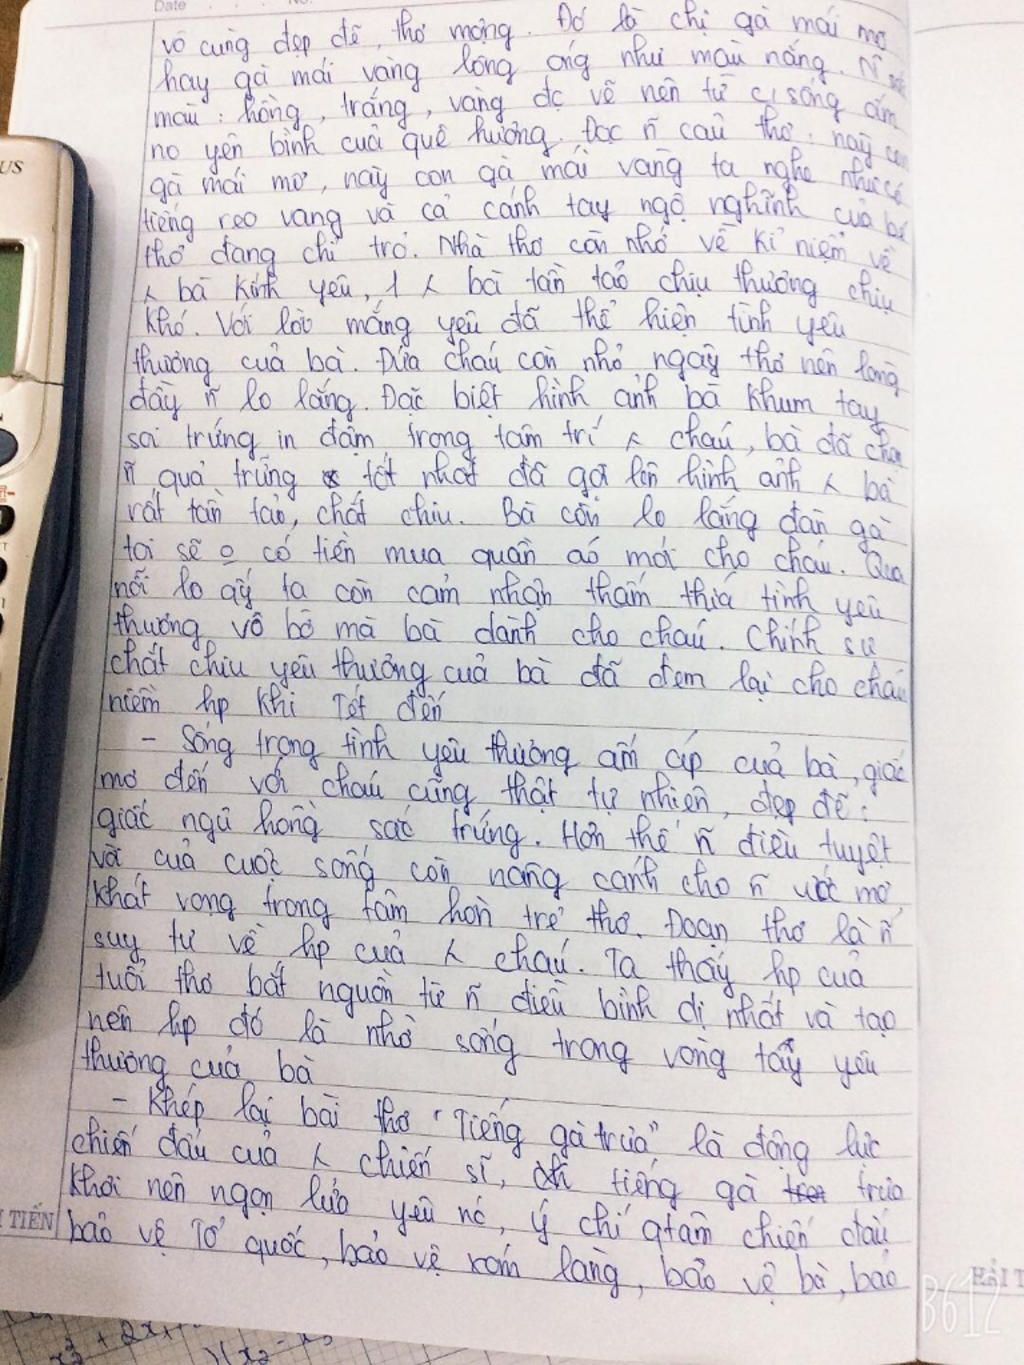 Date
No.
vô cùng đẹp đẽ, thơ mộng. Đó là chị gà mái mơ
hay gà mái vàng lông óng như màu nắng. N̄ sắc
màu: hồng, trắng, vàng đc vẽ nên từ c/sống ấm
no yên bình của quê hương. Đọc n̄ câu thơ: này con
gà mái mơ, này con gà mái vàng ta nghe như có
tiếng reo vang và cả cánh tay ngộ nghĩnh của bé
thơ đang chỉ trỏ. Nhà thơ còn nhớ về kỉ niệm về
bà kính yêu, 1 bà tần tảo chịu thương chịu
khó. Với lời mắng yêu đã thể hiện tình yêu
thương của bà. Đứa cháu còn nhỏ, ngây thơ nên lòng
đầy n̄ lo lắng. Đặc biệt hình ảnh bà khum tay
soi trứng in đậm trong tâm trí cháu, bà đã chọn
n̄ quả trứng tốt nhất đã gợi lên hình ảnh bà
rất tần tảo, chắt chiu. Bà còn lo lắng đàn gà
toi sẽ o có tiền mua quần áo mới cho cháu. Qua
nỗi lo ấy ta còn cảm nhận thấm thía tình yêu
thương vô bờ mà bà dành cho cháu. Chính sự
chắt chiu yêu thương của bà đã đem lại cho cháu
niềm hp khi Tết đến
- Sống trong tình yêu thương ấm áp của bà, giấc
mơ đến với cháu cũng thật tự nhiên, đẹp đẽ:
giấc ngủ hồng sắc trứng. Hơn thế n̄ điều tuyệt
vời của cuộc sống còn nâng cánh cho n̄ ước mơ
khát vọng trong tâm hồn trẻ thơ. Đoạn thơ là n̄
suy tư về hp của cháu. Ta thấy hp của
tuổi thơ bắt nguồn từ n̄ điều bình dị nhất và tạo
nên hp đó là nhờ sống trong vòng tay yêu
thương của bà
- Khép lại bài thơ "Tiếng gà trưa" là động lực
chiến đấu của chiến sĩ, tiếng gà trưa
khơi nên ngọn lửa yêu nc, ý chí qtâm chiến đấu
bảo vệ Tổ quốc, bảo vệ xóm làng, bảo vệ bà, bảo
TIẾN
HẢI T
B612